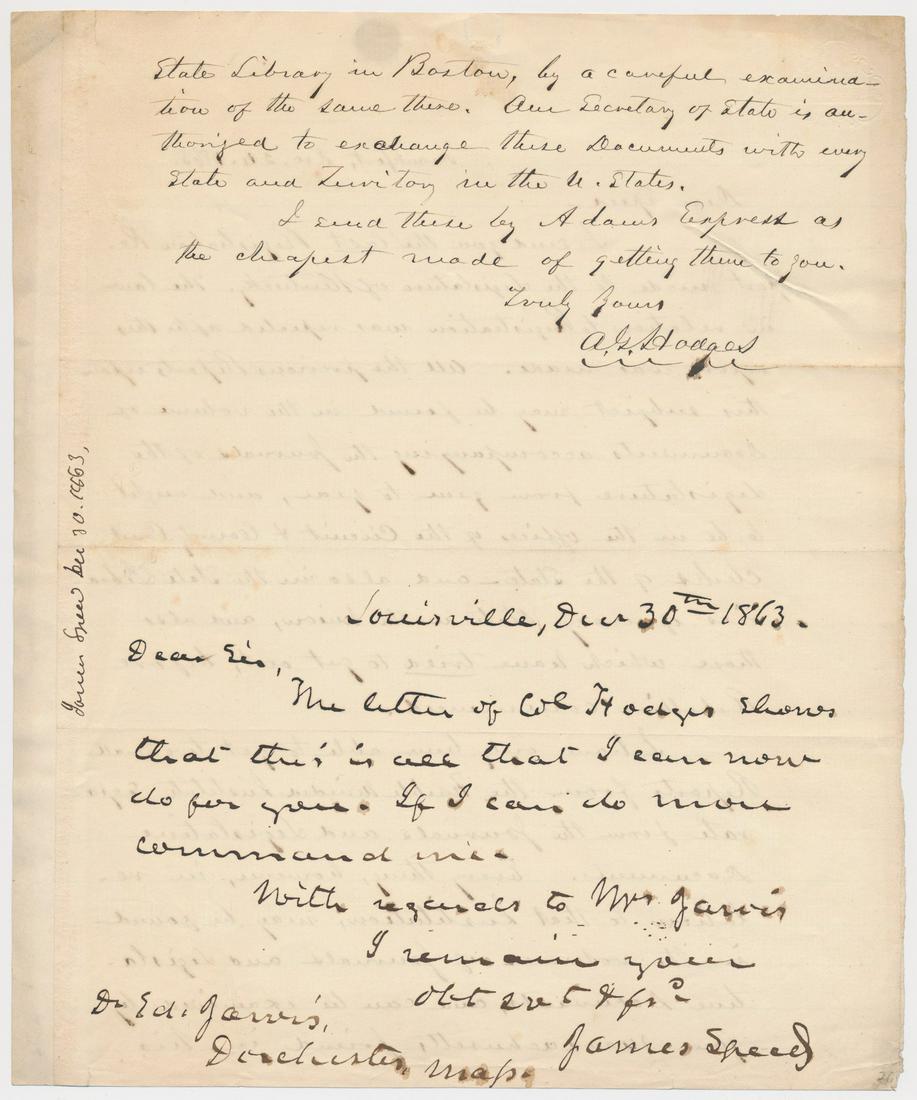 State Library in Boston, by a careful examina-
tion of the same there. Our Secretary of State is au-
thorized to exchange these Documents with every
State and Territory in the U. States.
I send these by Adams Express as
the cheapest mode of getting them to you.
Truly yours
A. G. Hodges
James Speed Dec 30. 1863,
Louisville, Decr 30th 1863.
Dear Sir,
The letter of Col Hodges shows
that this is all that I can now
do for you. If I can do more
command me.
With regards to Mrs Jarvis
I remain your
Obt svt & frd
James Speed
Dr Ed. Jarvis,
Dorchester, Mass.